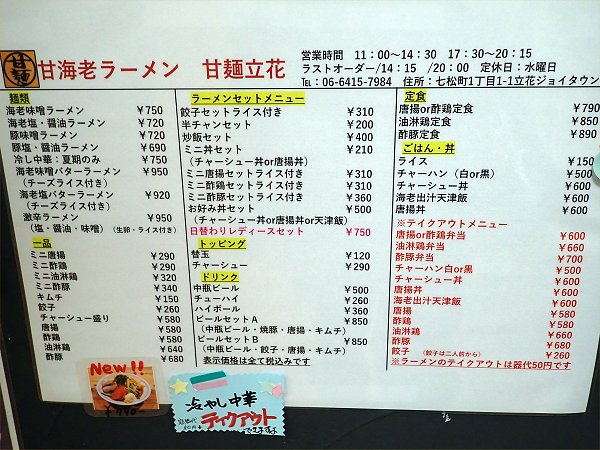 甘麺
甘海老ラーメン 甘麺立花
営業時間 11:00～14:30 17:30～20:15
ラストオーダー/14:15 /20:00 定休日:水曜日
TEL:06-6415-7984 住所:七松町1丁目1-1立花ジョイタウン
麺類
海老味噌ラーメン ￥750
海老塩・醤油ラーメン ￥720
豚味噌ラーメン ￥720
豚塩・醤油ラーメン ￥690
冷し中華:夏期のみ ￥750
海老味噌バターラーメン ￥950
(チーズライス付き)
海老塩バターラーメン ￥920
(チーズライス付き)
激辛ラーメン ￥950
(塩・醤油・味噌) (生卵・ライス付き)
一品
ミニ唐揚 ￥290
ミニ酢鶏 ￥290
ミニ油淋鶏 ￥320
ミニ酢豚 ￥340
キムチ ￥150
餃子 ￥260
チャーシュー盛り ￥580
唐揚 ￥580
酢鶏 ￥580
油淋鶏 ￥640
酢豚 ￥680
ラーメンセットメニュー
餃子セットライス付き ￥310
半チャンセット ￥200
炒飯セット ￥400
ミニ丼セット ￥210
(チャーシュー丼or唐揚丼)
ミニ唐揚セットライス付き ￥310
ミニ酢鶏セットライス付き ￥310
ミニ酢豚セットライス付き ￥360
お好み丼セット ￥500
(チャーシュー丼or唐揚丼or天津飯)
日替わりレディースセット ￥750
トッピング
替玉 ￥120
チャーシュー ￥290
ドリンク
中瓶ビール ￥500
チューハイ ￥260
ハイボール ￥360
ビールセットA ￥850
(中瓶ビール・焼豚・唐揚・キムチ)
ビールセットB ￥850
(中瓶ビール・餃子・唐揚・キムチ)
表示価格は全て税込みです
定食
唐揚or酢鶏定食 ￥790
油淋鶏定食 ￥850
酢豚定食 ￥890
ごはん・丼
ライス ￥150
チャーハン(白or黒) ￥500
チャーシュー丼 ￥600
海老出汁天津飯 ￥600
唐揚丼 ￥600
※テイクアウトメニュー
唐揚or酢鶏弁当 ￥600
油淋鶏弁当 ￥660
酢豚弁当 ￥700
チャーハン白or黒 ￥500
チャーシュー丼 ￥600
唐揚丼 ￥600
海老出汁天津飯 ￥600
唐揚 ￥580
酢鶏 ￥580
油淋鶏 ￥660
酢豚 ￥680
餃子 (餃子は二人前から) ￥260
※ラーメンのテイクアウトは器代50円です
New!!
冷やし中華
テイクアウト
できます